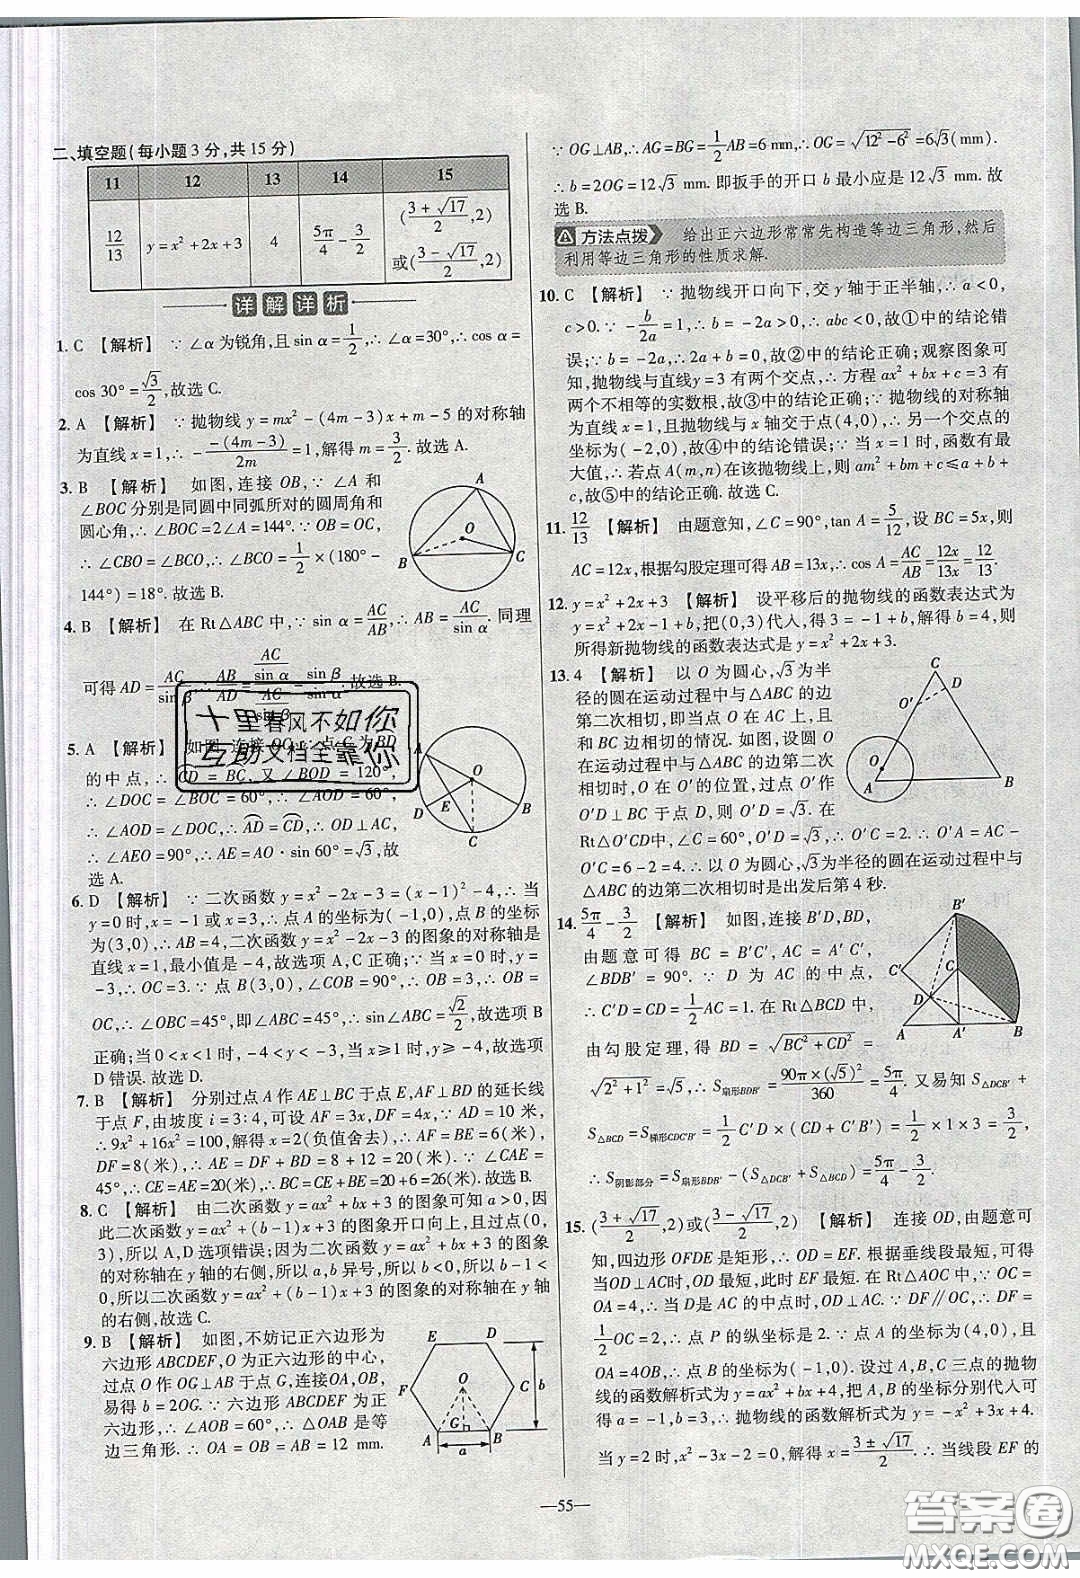 二、填空题(每小题3分,共15分)
11 12 13 14 15
12/13 y=x²+2x+3 4 5π/4-3/2 ((3+√17)/2,2)或((3-√17)/2,2)
详解详析
1. C 【解析】 ∵∠α为锐角,且sin α=1/2,∴∠α=30°,∴cos α=
cos 30°=√3/2,故选C.
2. A 【解析】 ∵抛物线y=mx²-(4m-3)x+m-5的对称轴
为直线x=1,∴-(-(4m-3))/2m=1,解得m=3/2.故选A.
3. B 【解析】 如图,连接OB, ∵∠A和
∠BOC分别是同圆中同弧所对的圆周角和
圆心角,∴∠BOC=2∠A=144°.∵OB=OC,
∴∠CBO=∠BCO=1/2×(180°-
144°)=18°.故选B.
A
O
B
C
4. B 【解析】 在Rt△ABC中,∵sin α=AC/AB,∴AB=AC/sin α.同理
可得AD=AC/sin β,∴AB/AD=(AC/sin α)/(AC/sin β)=sin β/sin α.故选B.
十里春风不如你
互助文档全靠你
5. A 【解析】 如图,连接OC,∵点C为BD
的中点,∴CD=BC,又∠BOD=120°,
∴∠DOC=∠BOC=60°,∴∠AOD=60°,
∴∠AOD=∠DOC,∴AD=CD,∴OD⊥AC,
∴∠AEO=90°,∴AE=AO·sin 60°=√3.故
选A.
A
O
D
E
B
C
6. D 【解析】 ∵二次函数y=x²-2x-3=(x-1)²-4,∴当
y=0时,x=-1或x=3,∴点A的坐标为(-1,0),点B的坐标为
(3,0),∴AB=4,二次函数y=x²-2x-3的图象的对称轴是
直线x=1,最小值是-4,故选项A,C正确;∵当x=0时,y=
-3,∴OC=3.∵点B的坐标是(3,0),∠COB=90°,∴OB=
OC,∴∠OBC=45°,即∠ABC=45°,∴sin∠ABC=√2/2,故选项B
正确;当0<x<1时,-4<y<-3,当x≥1时,y≥-4,故选项
D错误.故选D.
7. B 【解析】 分别过点A作AE⊥BC于点E,AF⊥BD的延长线
于点F,由坡度i=3:4,可设AF=3x,DF=4x,∵AD=10米,
∴9x²+16x²=100,解得x=2(负值舍去),∴AF=BE=6(米),
DF=8(米),∴AE=DF+BD=8+12=20(米).∵∠CAE=
45°,∴CE=AE=20(米),∴BC=CE+BE=20+6=26(米).故选B.
8. C 【解析】 由二次函数y=ax²+bx+3的图象可知a>0,因
此二次函数y=ax²+(b-1)x+3的图象开口向上,且过点(0,
3),所以A,D选项错误;因为二次函数y=ax²+bx+3的图象
的对称轴在y轴的右侧,所以a,b异号,所以b<0,所以b-1<
0,所以二次函数y=ax²+(b-1)x+3的图象的对称轴在y轴
的右侧,故选C.
9. B 【解析】 如图,不妨记正六边形为
六边形ABCDEF,O为正六边形的中心,
过点O作OG⊥AB于点G,连接OA,OB,
易得b=2OG.∵六边形ABCDEF为正
六边形,∴∠AOB=60°,∴△OAB是等
边三角形.∵OA=OB=AB=12 mm.
E D
O
F C b
G
A a B
∵OG⊥AB,∴AG=BG=1/2AB=6 mm,∴OG=√(12²-6²)=6√3(mm).
∴b=2OG=12√3 mm.即扳手的开口b最小应是12√3 mm.故
选B.
方法点拨 给出正六边形常常先构造等边三角形,然后
利用等边三角形的性质求解.
10. C 【解析】 ∵抛物线开口向下,交y轴于正半轴,∴a<0,
c>0.∵-b/2a=1,∴b=-2a>0,∴abc<0,故①中的结论错
误;∵b=-2a,∴2a+b=0,故②中的结论正确;观察图象可
知,抛物线与直线y=3有两个交点,∴方程ax²+bx+c=3有
两个不相等的实数根,故③中的结论正确;∵抛物线的对称轴
为直线x=1,且抛物线与x轴交于点(4,0),∴另一个交点的
坐标为(-2,0),故④中的结论错误;∵当x=1时,函数有最
大值,∴若点A(m,n)在该抛物线上,则am²+bm+c≤a+b+
c,故⑤中的结论正确.故选C.
11. 12/13 【解析】 由题意知,∠C=90°,tan A=5/12,设BC=5x,则
AC=12x,根据勾股定理可得AB=13x,∴cos A=AC/AB=12x/13x=12/13.
12. y=x²+2x+3 【解析】 设平移后的抛物线的函数表达式为
y=x²+2x-1+b,把(0,3)代入,得3=-1+b,解得b=4,则
所得新抛物线的函数表达式是y=x²+2x+3.
13. 4 【解析】 以O为圆心,√3为半
径的圆在运动过程中与△ABC的边
第二次相切,即点O运动到AC上,
且和BC相切的情况.如图,设圆O
在运动过程中与△ABC的边第二次
相切时,点O在O'的位置,过点O'作
O'D⊥BC于点D,则O'D=√3.在
Rt△O'CD中,∠C=60°,O'D=√3,∴O'C=2.∵AC=6,∴
O'C=6-2=4.∴以O为圆心,√3为半径的圆在运动过程中与
△ABC的边第二次相切时是出发后第4秒.
C
O' D
O
A B
14. 5π/4-3/2 【解析】 如图,连接B'D,BD,
由题意可得BC=B'C',AC=A'C',
∠BDB'=90°.∵D为AC的中点,
∴C'D=CD=1/2AC=1.在Rt△BCD中,
由勾股定理,得BD=√(BC²+CD²)=
√(2²+1²)=√5,∴S扇形BDB'=90π×(√5)²/360=5π/4.又易知S△DCB'+
S△BCD=S梯形CDC'B'=1/2C'D×(CD+C'B')=1/2×1×3=3/2,
∴S阴影部分=S扇形BDB'-(S△DCB'+S△BCD)=5π/4-3/2.
B'
C' C
D
A A' B
15. ((3+√17)/2,2)或((3-√17)/2,2) 【解析】 连接OD,由题意可
知,四边形OFDE是矩形,∴OD=EF.根据垂线段最短,可得
当OD⊥AC时,OD最短,此时EF最短.在Rt△AOC中,∵OC=
OA=4,∴当D是AC的中点时,OD⊥AC.∵DF∥OC,∴DF=
1/2OC=2,∴点P的纵坐标是2.∵点A的坐标为(4,0),且
OA=4OB,∴点B的坐标为(-1,0).设过A,B,C三点的抛物
线的函数解析式为y=ax²+bx+4,把A,B的坐标分别代入可
得a=-1,b=3,∴抛物线的函数解析式为y=-x²+3x+4.
当y=2时,x²-3x-2=0,解得x=(3±√17)/2.∴当线段EF的
—55—
答案圈
MXQE.COM